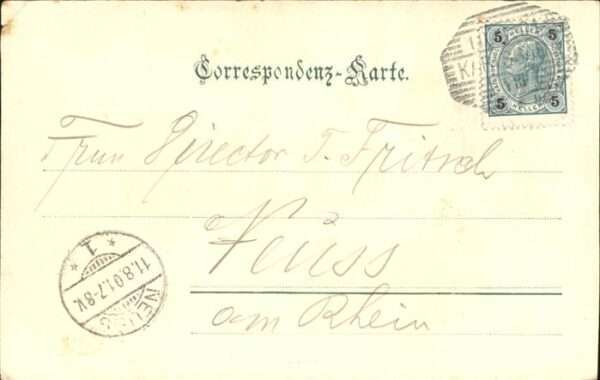 Correspondenz-Karte.
5 5
5 5
HELLER
Frau Director T. Fritsch
Neuss
am Rhein
* 1 *
11.8.01.7-8V.
NEUSS